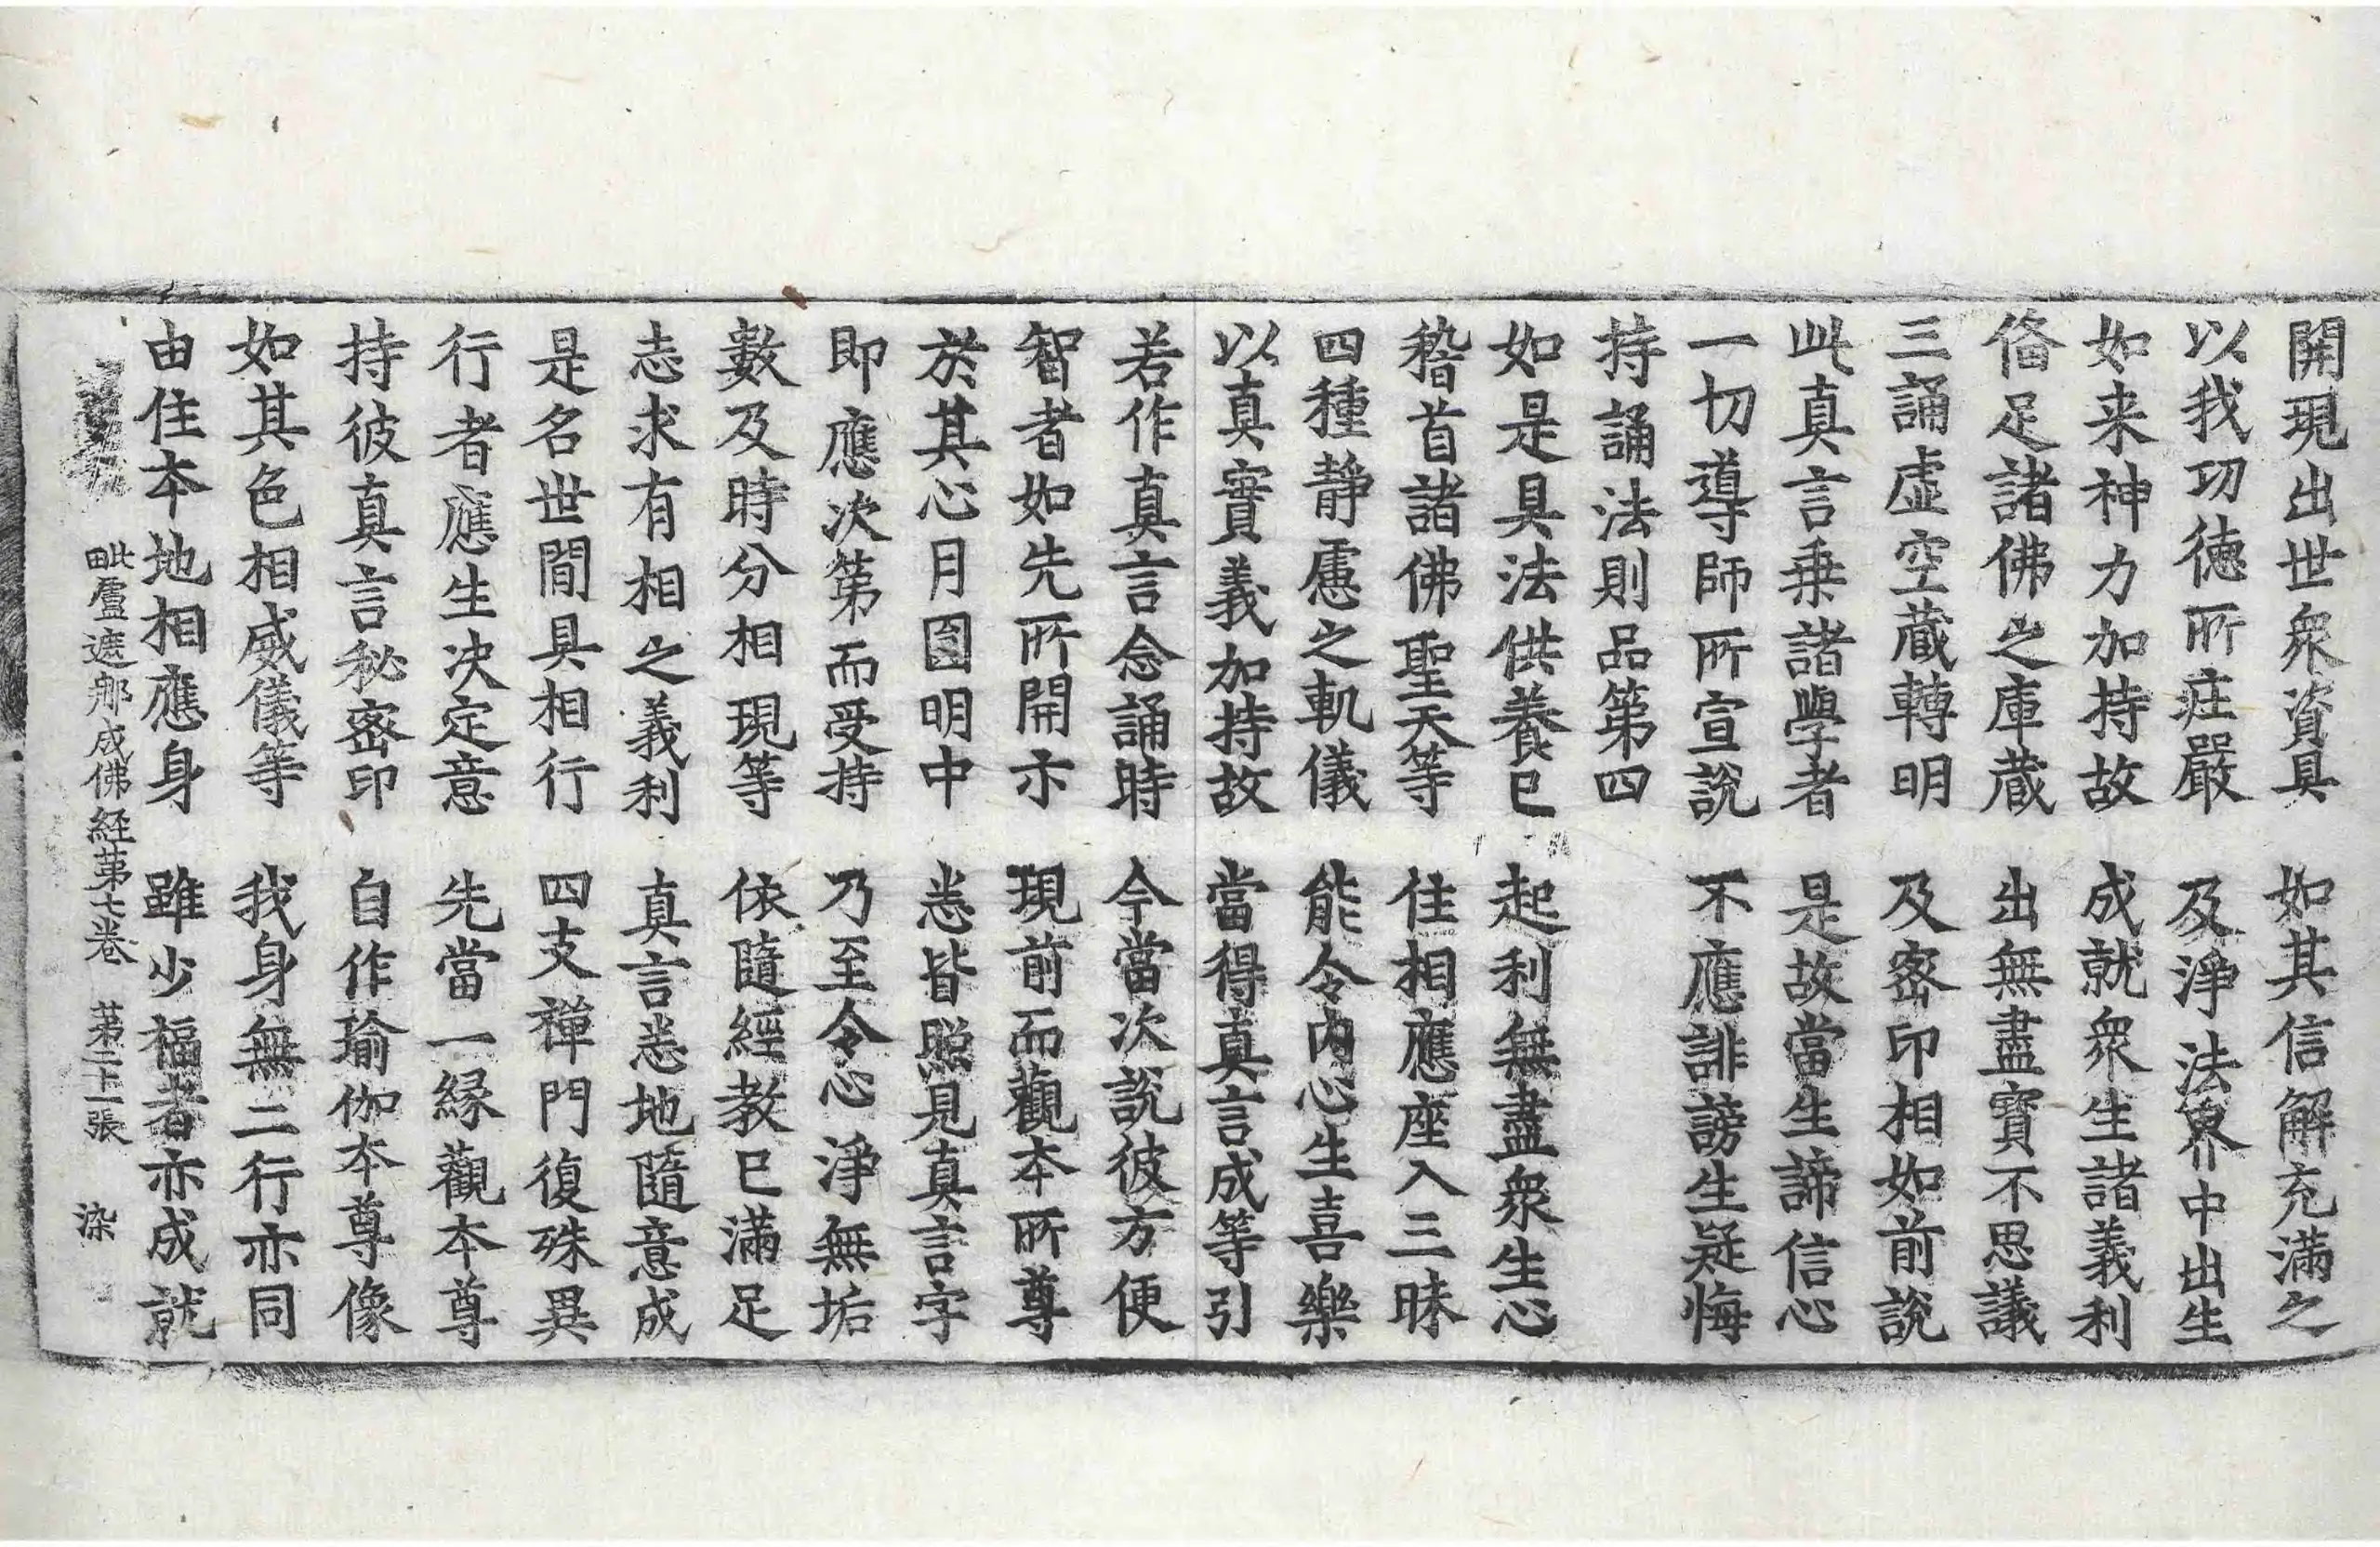 開現出世衆資具　如其信解充滿之
以我功德所莊嚴　及淨法界中出生
如来神力加持故　成就衆生諸義利
俻足諸佛之庫蔵　出無盡寶不思議
三誦虛空蔵轉明　及密印相如前説
此真言乗諸學者　是故當生諦信心
一切導師所宣説　不應誹謗生疑悔
持誦法則品第四
如是具法供養已　起利無盡衆生心
稽首諸佛聖天等　住相應座入三昧
四種静慮之軌儀　能令内心生喜樂
以真實義加持故　當得真言成等引
若作真言念誦時　今當次説彼方便
智者如先所開示　現前而觀本所尊
於其心月圓明中　悉皆照見真言字
即應次第而受持　乃至令心淨無垢
數及時分相現等　依隨經教已滿足
志求有相之義利　真言悉地隨意成
是名世間具相行　四支禪門復殊異
行者應生决定意　先當一緣觀本尊
持彼真言秘密印　自作瑜伽本尊像
如其色相威儀等　我身無二行亦同
由住本地相應身　雖少福者亦成就
毗盧遮那成佛経第七卷　第二十一張　染